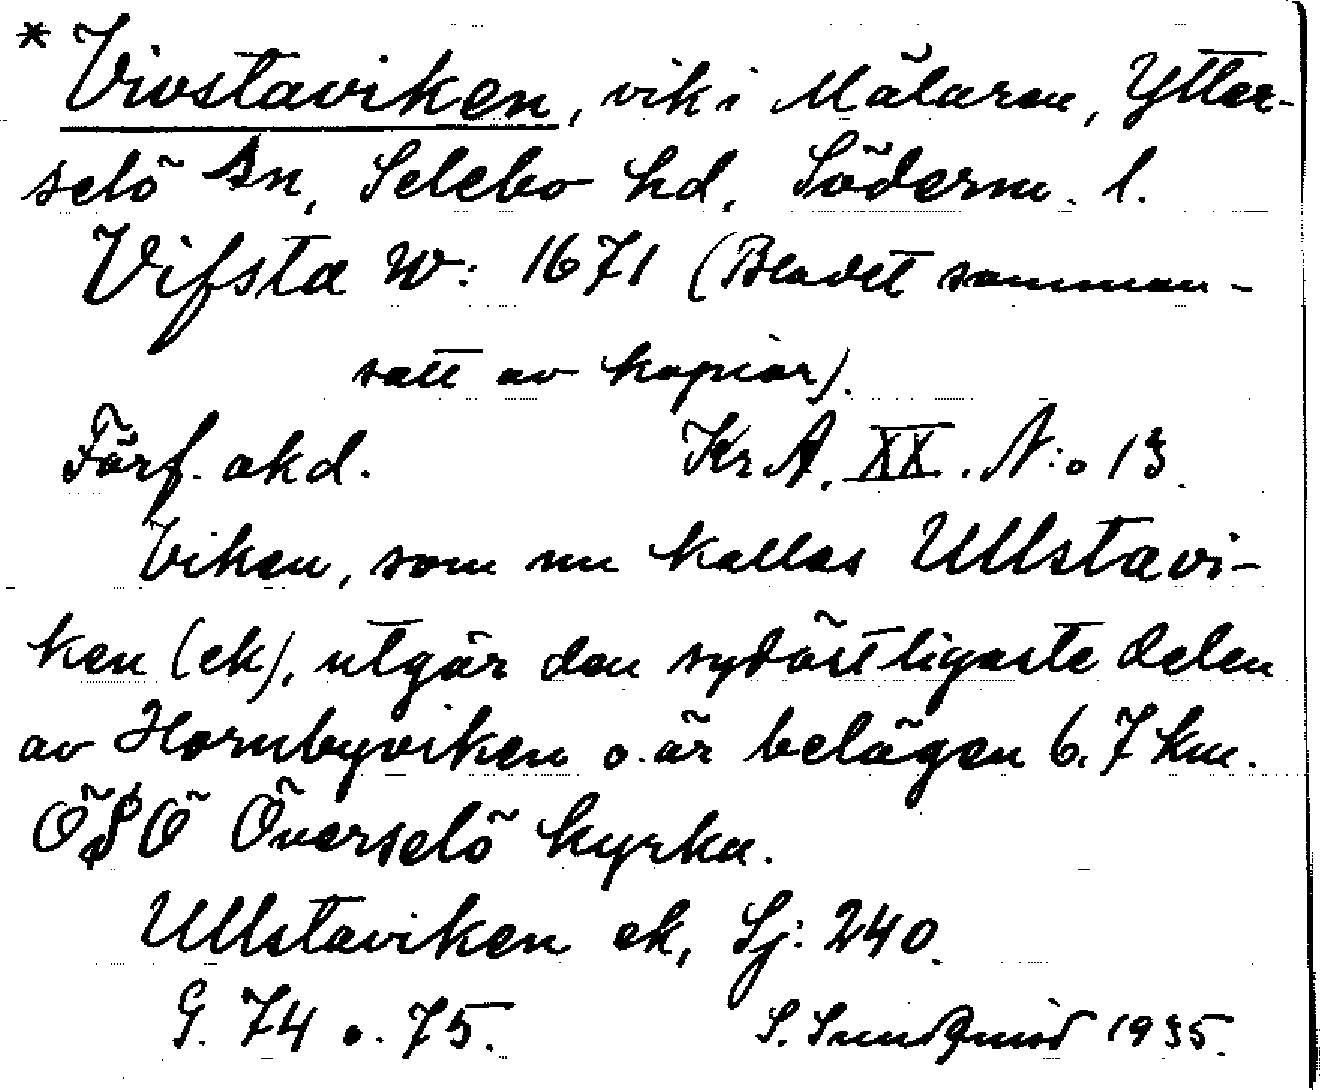 * Vivstaviken, vik i Mälaren, Ytter-
selö sn, Selebo hd, Söderm. l.
Vifsta W: 1671 (Bladet samman-
satt av kopior).
Förf. okd. Kr. A. XX. N:o 13.
Viken, som nu kallas Ullstavi-
ken (ek), utgör den sydöstligaste delen
av Hornbyviken o. är belägen 6,7 km.
ÖSÖ Överselö kyrka.
Ullstaviken ek, Sj: 240.
G. 74 o. 75. S. Sundquist 1935.